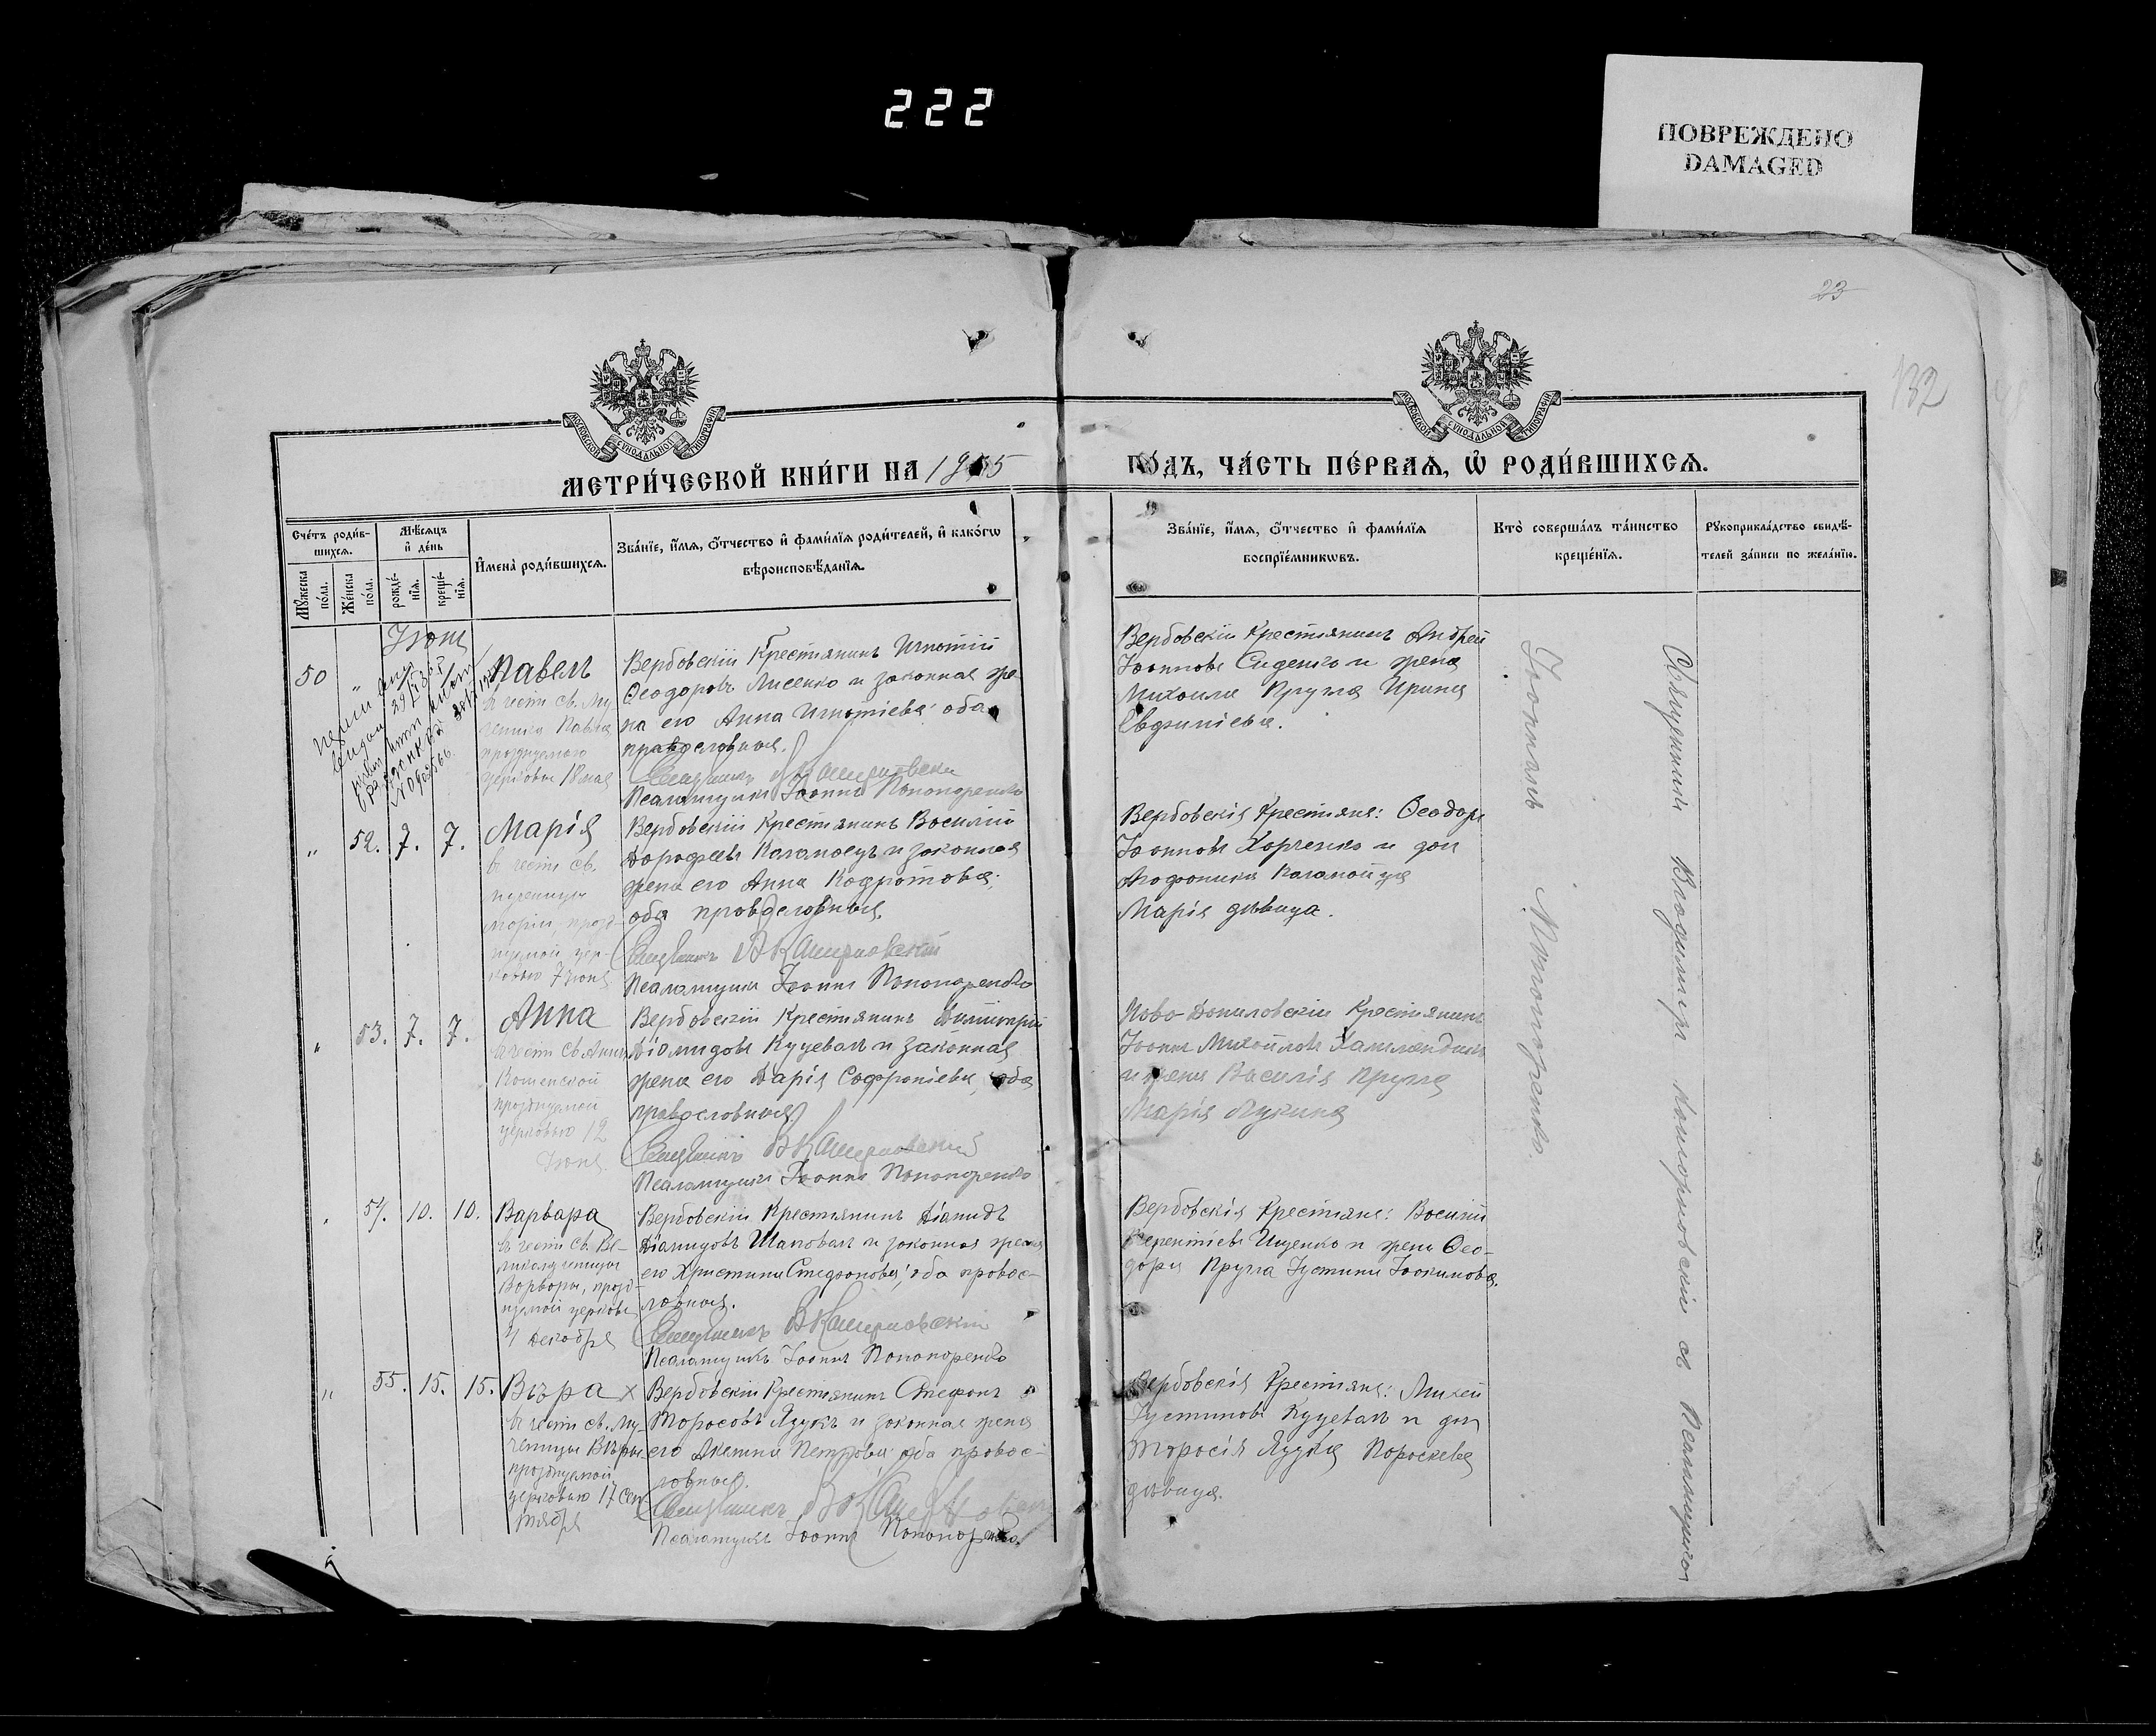 222
ПОВРЕЖДЕНО
DAMAGED
23
132
МОСКОВСКОЙ СУНОДАЛЬНОЙ ТИПОГРАФІИ
МОСКОВСКОЙ СУНОДАЛЬНОЙ ТИПОГРАФІИ
МЕТРИ́ЧЕСКОЙ КНИ́ГИ НА 1905
ГО́ДЪ, ЧА́СТЬ ПЕ́РВАѦ, Ѡ РОДИ́ВШИХСѦ.
Сче́тъ роди́в-
шихсѧ.
Мѣ́сѧцъ
и҆ де́нь
Мꙋ́жеска
по́ла.
Же́нска
по́ла.
рожде́-
нїѧ.
креще́-
нїѧ.
И҆мена̀ роди́вшихсѧ.
Зва́нїе, и҆́мѧ, ѻ҆́тчество и҆ фами́лїѧ роди́телей, и҆ како́гѡ
вѣроисповѣ́данїѧ.
Зва́нїе, и҆́мѧ, ѻ҆́тчество и҆ фами́лїѧ
воспрїе́мникѡвъ.
Кто̀ соверша́лъ та́инство
креще́нїѧ.
Рꙋкоприкла́дство свидѣ́-
телей за́писи по жела́нїю.
Іюнь
50
"
Павелъ
въ честь св. Му
ченика Павла
празднуемаго
церковью 18 мая
Вербовскій Крестьянинъ Игнатій
Ѳеодоровъ Лисенко и законная же-
на его Анна Игнатіева: оба
православные.
Священникъ
Псаломщикъ Іоаннъ Пономаренко
Вербовскій Крестьянинъ Андрей
Іоанновъ Сиденко и жена
Михаила Кругла Ирина
Евфиміева.
" 52. 7. 7.
Марія
въ честь св.
мученицы
Маріи, празд-
нуемой цер-
ковью 7 іюня
Вербовскій Крестьянинъ Василій
Дорофеевъ Каламоецъ и законная
жена его Анна Кодратова;
оба православные.
Священникъ В Кашерновскій
Псаломщикъ Іоаннъ Пономаренко
Вербовскія Крестьяне: Ѳеодоръ
Іоанновъ Харченко и дочь
Марія дѣвица.
" 53. 7. 7.
Анна
въ честь св. Анны
празднуемой
церковью 12
Іюня.
Вербовскій Крестьянинъ Димитрій
Діомидовъ Куцевалъ и законная
жена его Дарія Софроніева, оба
православные.
Священникъ В Кашерновскій
Псаломщикъ Іоаннъ Пономаренко
Ново-Даниловскій Крестьянинъ
Іоаннъ Михайловъ
и жена Василія Кругла
Марія Лукина
" 54. 10. 10.
Варвара
въ честь св. Ве-
ликомученицы
Варвары, празд-
нуемой церковью
4 декабря
Вербовскій Крестьянинъ Діамидъ
Діамидовъ Шаповалъ и законная жена
его Христина Стефанова; оба правос-
лавные.
Священникъ В Кашерновскій
Псаломщикъ Іоаннъ Пономаренко
Вербовскія Крестьяне: Василій
Терентіевъ Ищенко и жена Ѳео-
дора Кругла Іустина Іоакимова.
" 55. 15. 15.
Вѣра х
въ честь св. Му-
ченицы Вѣры
празднуемой
церковью 17 сен
тября
Вербовскій Крестьянинъ Стефанъ
Тарасовъ Яцукъ и законная жена
его Аксинія Петрова оба правос-
лавные.
Священникъ В
Псаломщикъ Іоаннъ Пономаренко
Вербовскія Крестьяне: Михей
Іустиновъ Куцевалъ и дочь
Тарасія Яцука Параскева
дѣвица.
Священникъ Владиміръ Кашерновскій съ Псаломщикомъ
Іоанномъ Пономаренко.